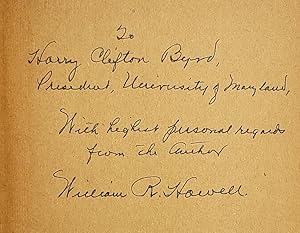 To
Harry Clifton Byrd,
President, University of Maryland,
With highest personal regards
from the author
William R. Howell.